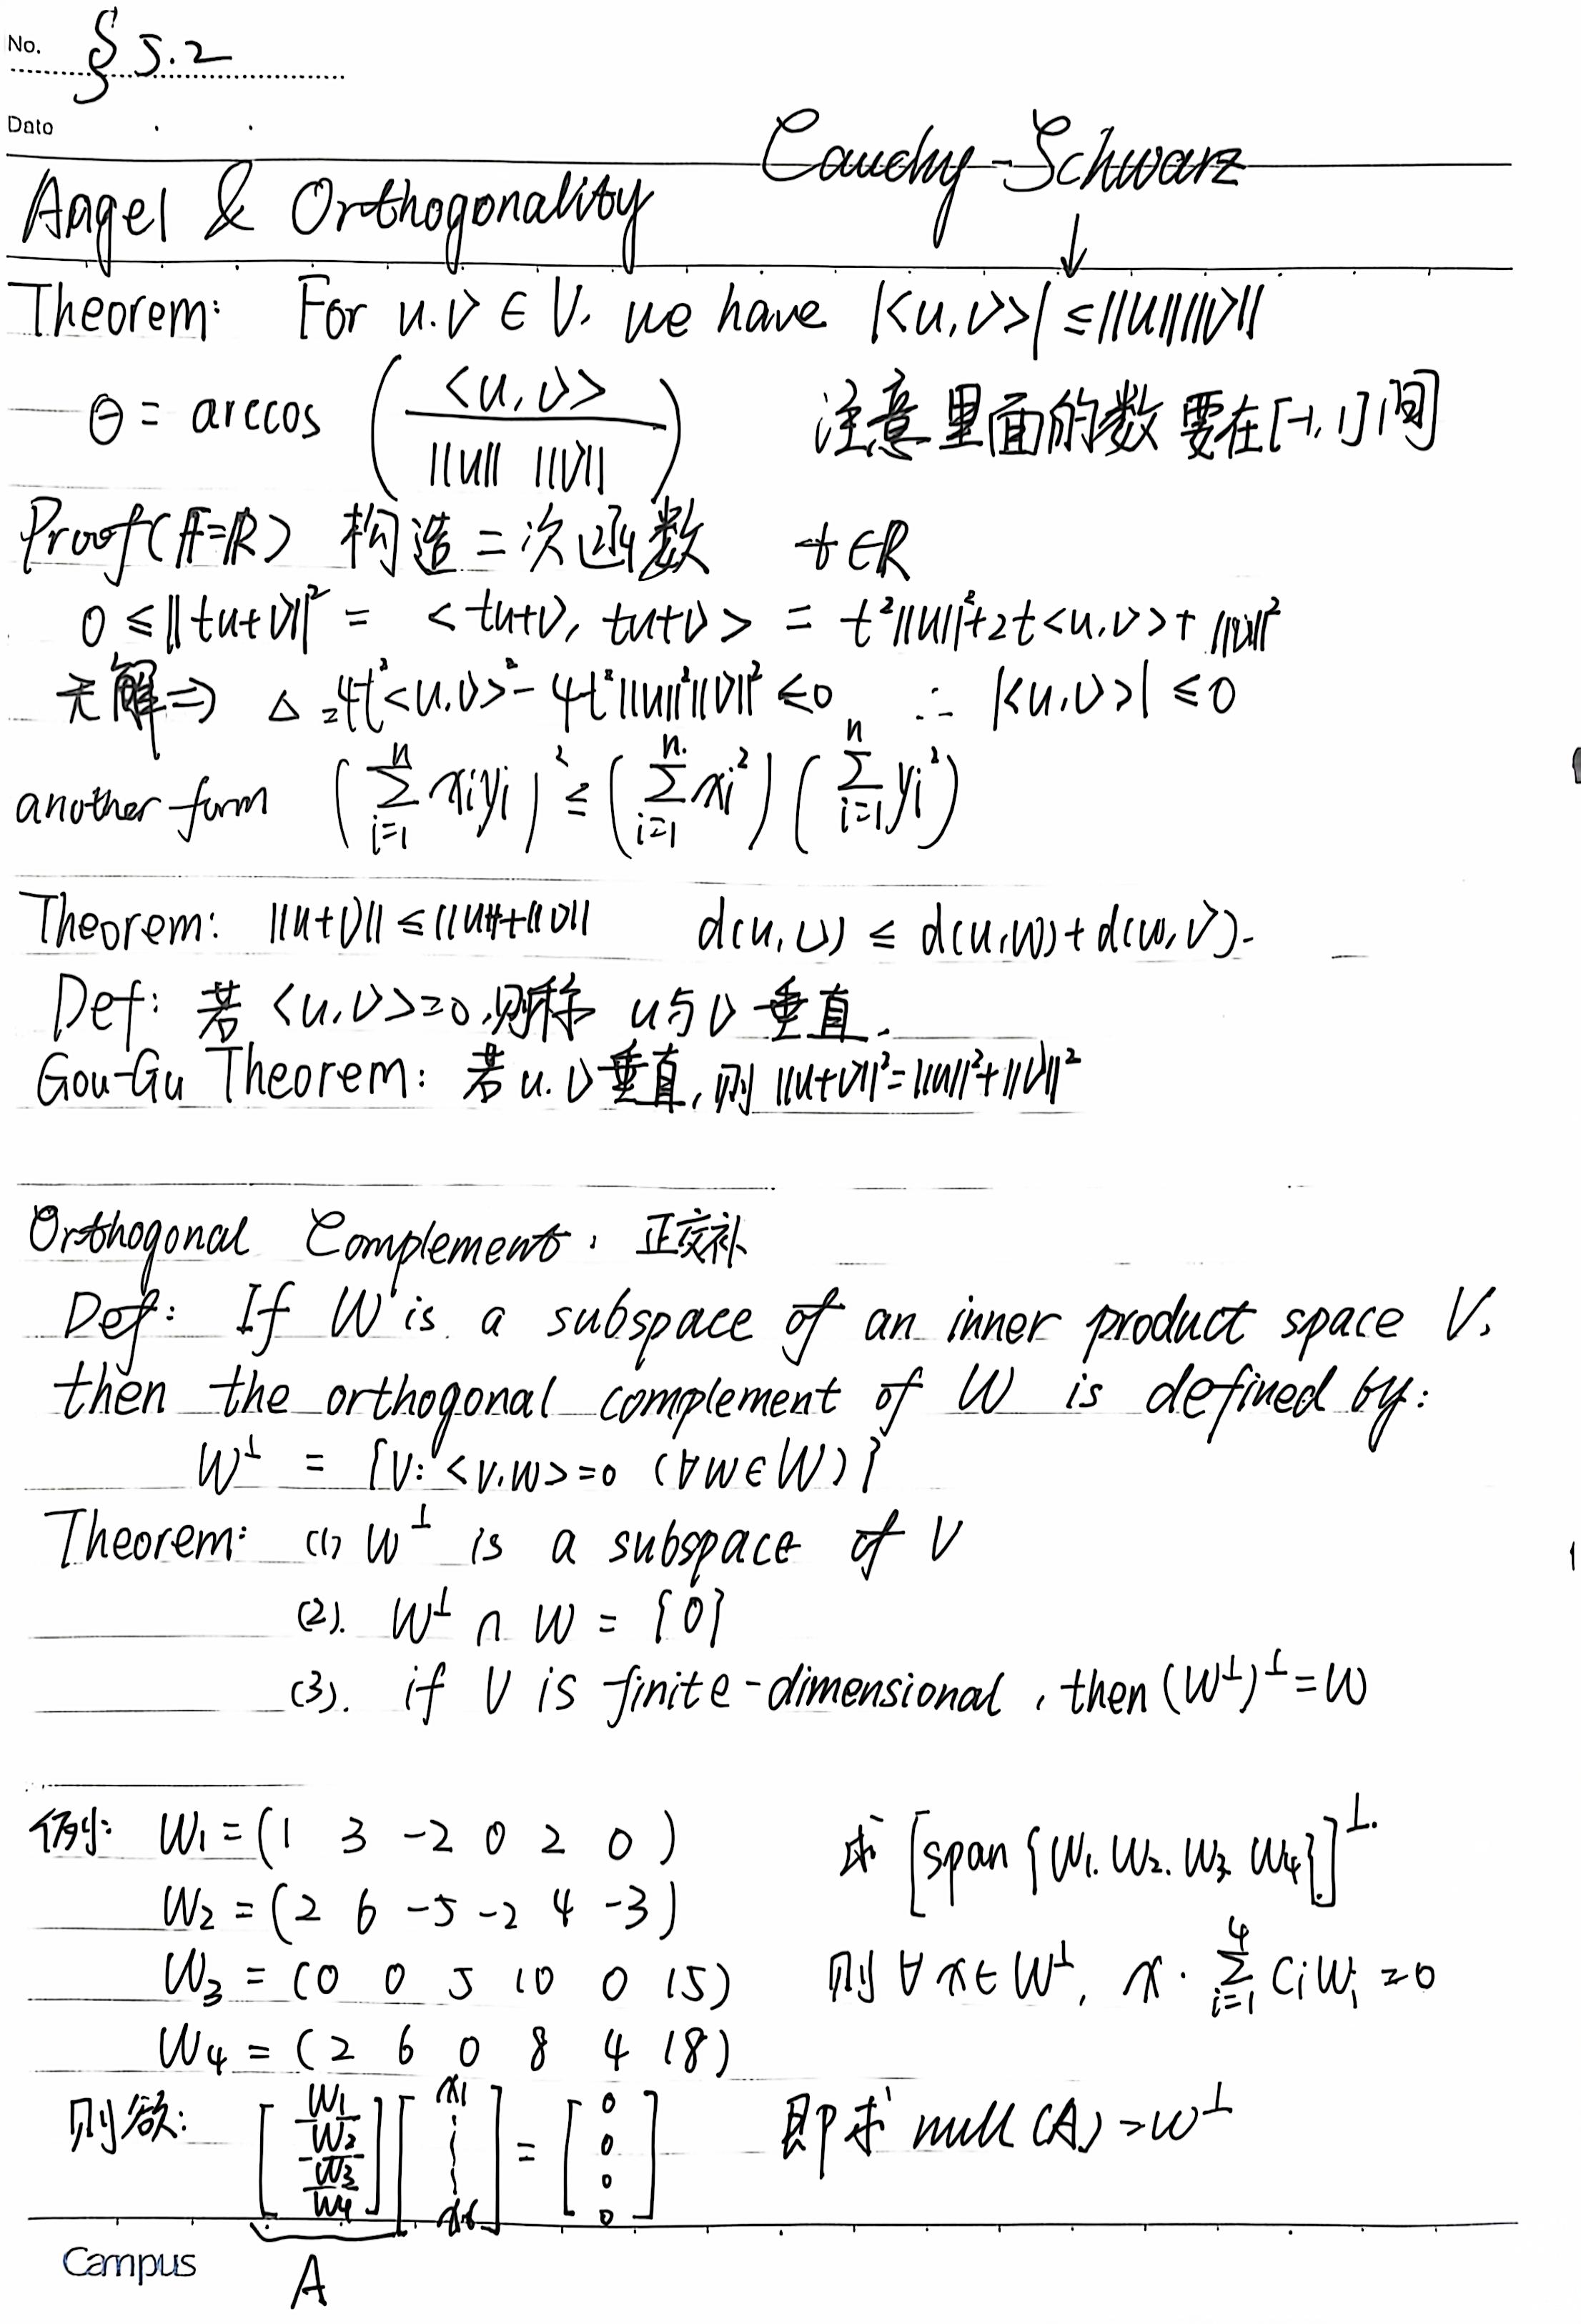 No. § 5.2
Date
Cauchy-Schwarz
Angel & Orthogonality
↓
Theorem: For u.v ∈ V, we have |<u,v>| ≤ ||u||||v||
θ = arccos ( <u,v> / ||u|| ||v|| ) 注意里面的数要在[-1,1]间
Proof(F=R) 构造二次函数 t∈R
0 ≤ ||tu+v||² = <tu+v, tu+v> = t²||u||²+2t<u,v>+ ||v||²
无解⇒ △=4t²<u,v>²-4t²||u||²||v||² ≤0 ∴ |<u,v>| ≤0
another form (∑_{i=1}^{n} xiyi)² ≤ (∑_{i=1}^{n} xi²) (∑_{i=1}^{n} yi²)
Theorem: ||u+v|| ≤ ||u||+||v|| d(u,v) ≤ d(u,w)+d(w,v).
Def: 若<u,v>=0,则称 u与v 垂直.
Gou-Gu Theorem: 若u.v垂直,则 ||u+v||²=||u||²+||v||²
Orthogonal Complement, 正交补
Def: If W is a subspace of an inner product space V,
then the orthogonal complement of W is defined by:
W⊥ = {v: <v,w>=0 (∀w∈W)}
Theorem: (1) W⊥ is a subspace of V
(2). W⊥ ∩ W = {0}
(3). if V is finite-dimensional, then (W⊥)⊥=W
例: W1=(1 3 -2 0 2 0) 求 [span{W1.W2.W3.W4}]⊥.
W2=(2 6 -5 -2 4 -3)
W3=(0 0 5 10 0 15) 则∀x∈W⊥, x·∑_{i=1}^{4} CiWi=0
W4=(2 6 0 8 4 18)
则欲: [W1 W2 W3 W4] [x1 ⋮ x6] = [0 0 0 0] 即求 null(A)=W⊥
Campus A